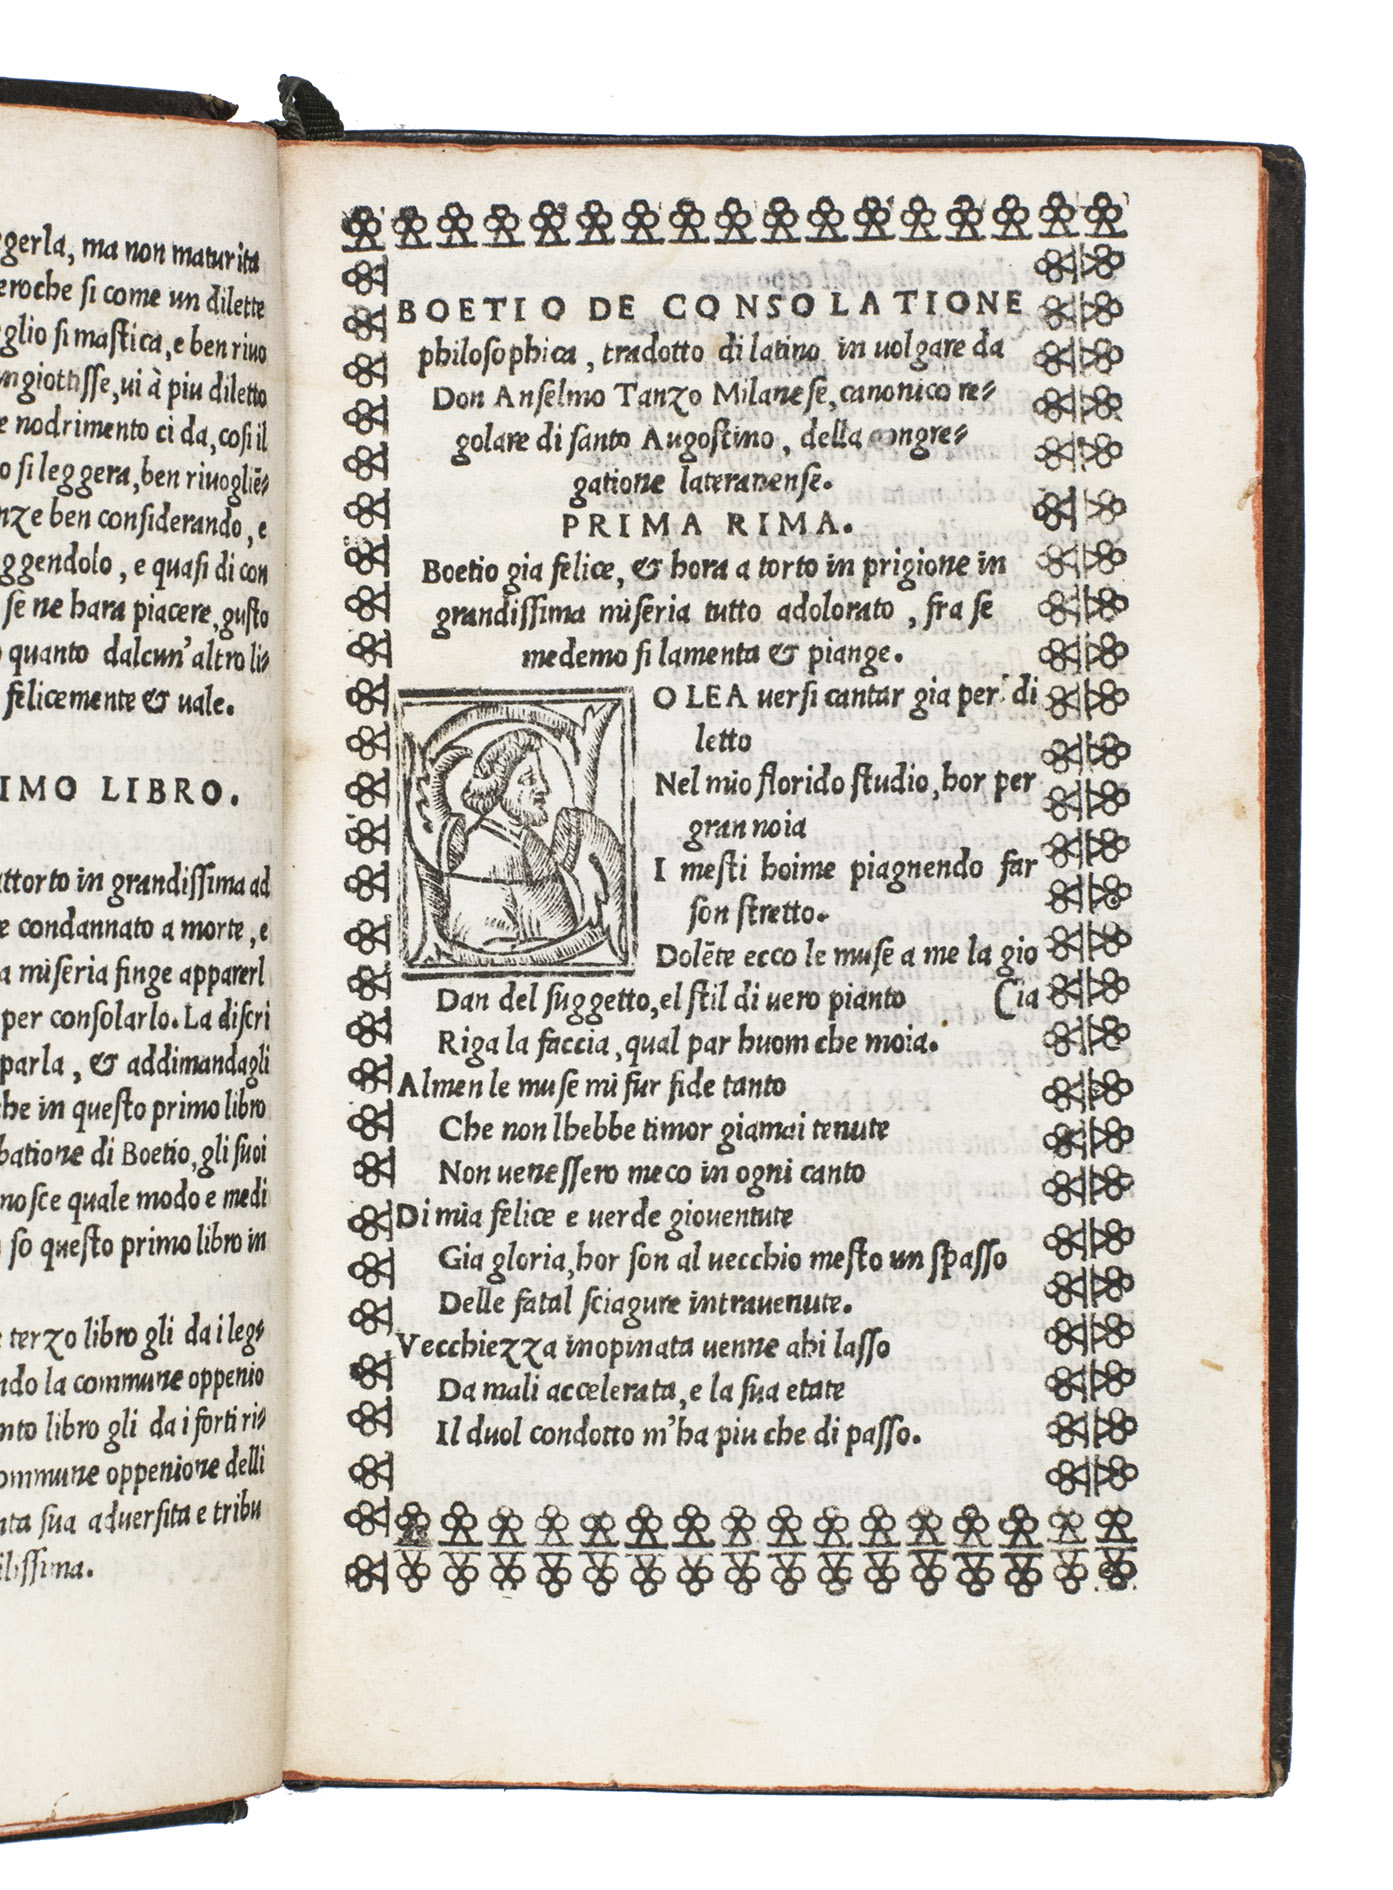 ggerla, ma non maturita
eroche si come un dilette
glio si mastica, e ben rivo
ngiottisse, ui à piu diletto
e nodrimento ci da, cosi il
o si leggera, ben riuogliē=
nze ben considerando, e
ggendolo, e quasi di con
se ne hara piacere, gusto
quanto dalcun'altro li=
felicemente & uale.
IMO LIBRO.
attorto in grandissima ad
e condannato a morte, e
a miseria finge apparerl
per consolarlo. La discri
parla, & addimandagli
he in questo primo libro
batione di Boetio, gli suoi
nosce quale modo e medi
so questo primo libro in
e terzo libro gli da i leg=
ndo la commune oppenio
nto libro gli da i forti ri=
ommune oppenione delli
nta sua aduersita e tribu
ilissima.
BOETIO DE CONSOLATIONE
philosophica, tradotto di latino in uolgare da
Don Anselmo Tanzo Milanese, canonico re=
golare di santo Augostino, della congre=
gatione lateranense.
PRIMA RIMA.
Boetio gia felice, & hora a torto in prigione in
grandissima miseria tutto adolorato, fra se
medemo si lamenta & piange.
SOLEA uersi cantar gia per di
letto
Nel mio florido studio, hor per
gran noia
I mesti hoime piagnendo far
son stretto.
Dolēte ecco le muse a me la gio
Dan del suggetto, el stil di uero pianto (ia
Riga la faccia, qual par huom che moia.
Almen le muse mi fur fide tanto
Che non lhebbe timor giamai tenute
Non uenessero meco in ogni canto
Di mia felice e uerde giouentute
Gia gloria, hor son al uecchio mesto un spasso
Delle fatal sciagure intrauenute.
Vecchiezza inopinata uenne ahi lasso
Da mali accelerata, e la sua etate
Il duol condotto m'ha piu che di passo.